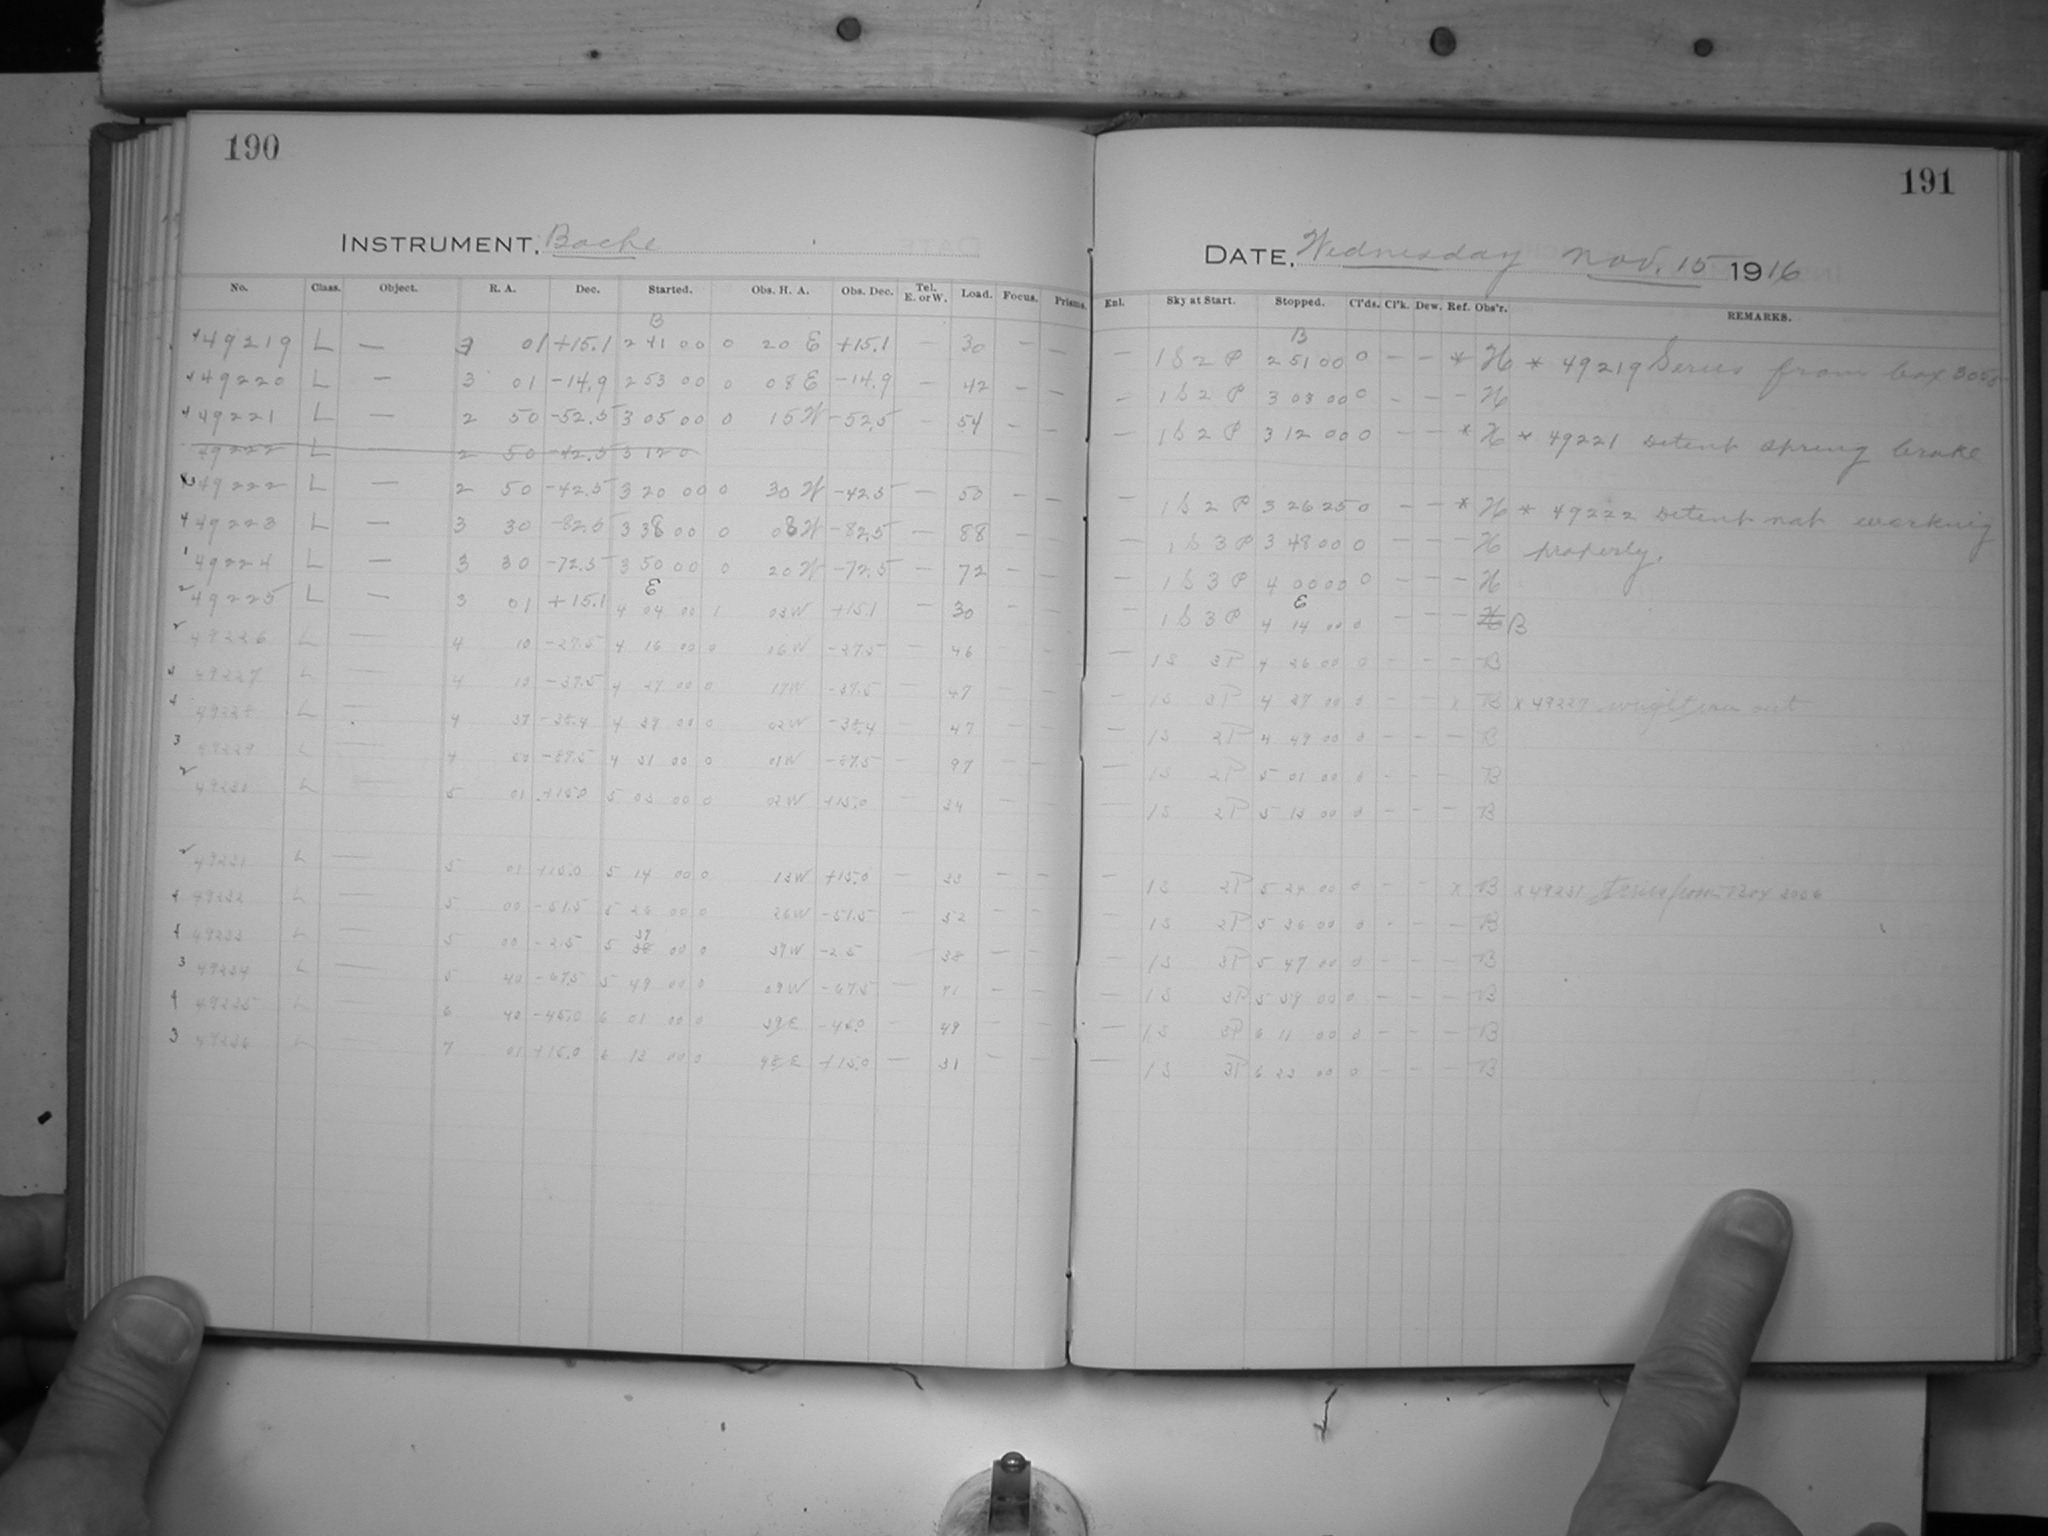 190
INSTRUMENT. Bache
No. Class. Object. R. A. Dec. Started. Obs. H. A. Obs. Dec. Tel. E. or W. Load. Focus. Prisms.
B
49219 L — 3 01 +15.1 2 41 00 0 20 E +15.1 — 30 — —
49220 L — 3 01 -14.9 2 53 00 0 08 E -14.9 — 42 — —
49221 L — 2 50 -52.5 3 05 00 0 15 W -52.5 — 54 — —
49222 L 2 50 -42.5 3 12 0
49222 L — 2 50 -42.5 3 20 00 0 30 W -42.5 — 50 — —
49223 L — 3 30 -82.5 3 38 00 0 08 W -82.5 — 88 — —
49224 L — 3 30 -72.5 3 50 00 0 20 W -72.5 — 72 — —
E
49225 L — 3 01 +15.1 4 04 00 1 03 W +15.1 — 30 — —
49226 L — 4 10 -27.5 4 16 00 0 16 W -27.5 — 46 — —
49227 L — 4 10 -37.5 4 27 00 0 17 W -37.5 — 47 — —
49228 L — 4 37 -38.4 4 39 00 0 02 W -38.4 — 47 — —
49229 L — 4 -87.5 4 51 00 0 01 W -87.5 — 97 — —
L 5 01 +15.0 5 03 00 0 02 W +15.0 — 34 — —
49231 L — 5 01 +15.0 5 14 00 0 13 W +15.0 — 33 — —
49232 L — 5 00 -51.5 5 26 00 0 26 W -51.5 — 52 — —
49233 L — 5 00 -2.5 5 37 00 0 37 W -2.5 38 — —
49234 L — 5 40 -67.5 5 49 00 0 09 W -67.5 — 71 — —
49235 L — 6 40 -45.0 6 01 00 0 39 E -45.0 — 49 — —
49236 L — 7 01 +15.0 6 13 00 0 48 E +15.0 — 31 — —
191
DATE. Wednesday Nov. 15 1916
Enl. Sky at Start. Stopped. Cl'ds. Cl'k. Dew. Ref. Obs'r. REMARKS.
B
— 1 S 2 P 2 51 00 0 — — * H * 49219 Series from box
— 1 S 2 P 3 03 00 0 — — — H
— 1 S 2 P 3 12 00 0 — — * H * 49221 Detent spring broke
— 1 S 2 P 3 26 25 0 — — * H * 49222 Detent not working
— 1 S 3 P 3 48 00 0 — — — H properly.
— 1 S 3 P 4 00 00 0 — — — H
E
— 1 S 3 P 4 14 00 0 — — — H B
— 1 S 3 P 4 26 00 0 — — — B
— 1 S 3 P 4 37 00 0 — — x B x 49227 weight ran out
— 1 S 2 P 4 49 00 0 — — — B
— 1 S 2 P 5 01 00 0 — — — B
— 1 S 2 P 5 13 00 0 — — — B
— 1 S 2 P 5 24 00 0 — — x B x 49231 Series from Box 3056
— 1 S 2 P 5 36 00 0 — — — B
— 1 S 3 P 5 47 00 0 — — — B
— 1 S 3 P 5 59 00 0 — — — B
— 1 S 3 P 6 11 00 0 — — — B
— 1 S 3 P 6 23 00 0 — — — B